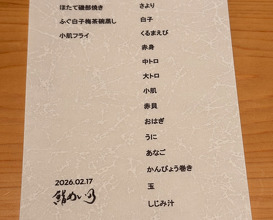 ほたて磯部焼き
ふぐ白子梅茶碗蒸し
小肌フライ
さより
白子
くるまえび
赤身
中トロ
大トロ
小肌
赤貝
おはぎ
うに
あなご
かんぴょう巻き
玉
しじみ汁
2026.02.17
鮨